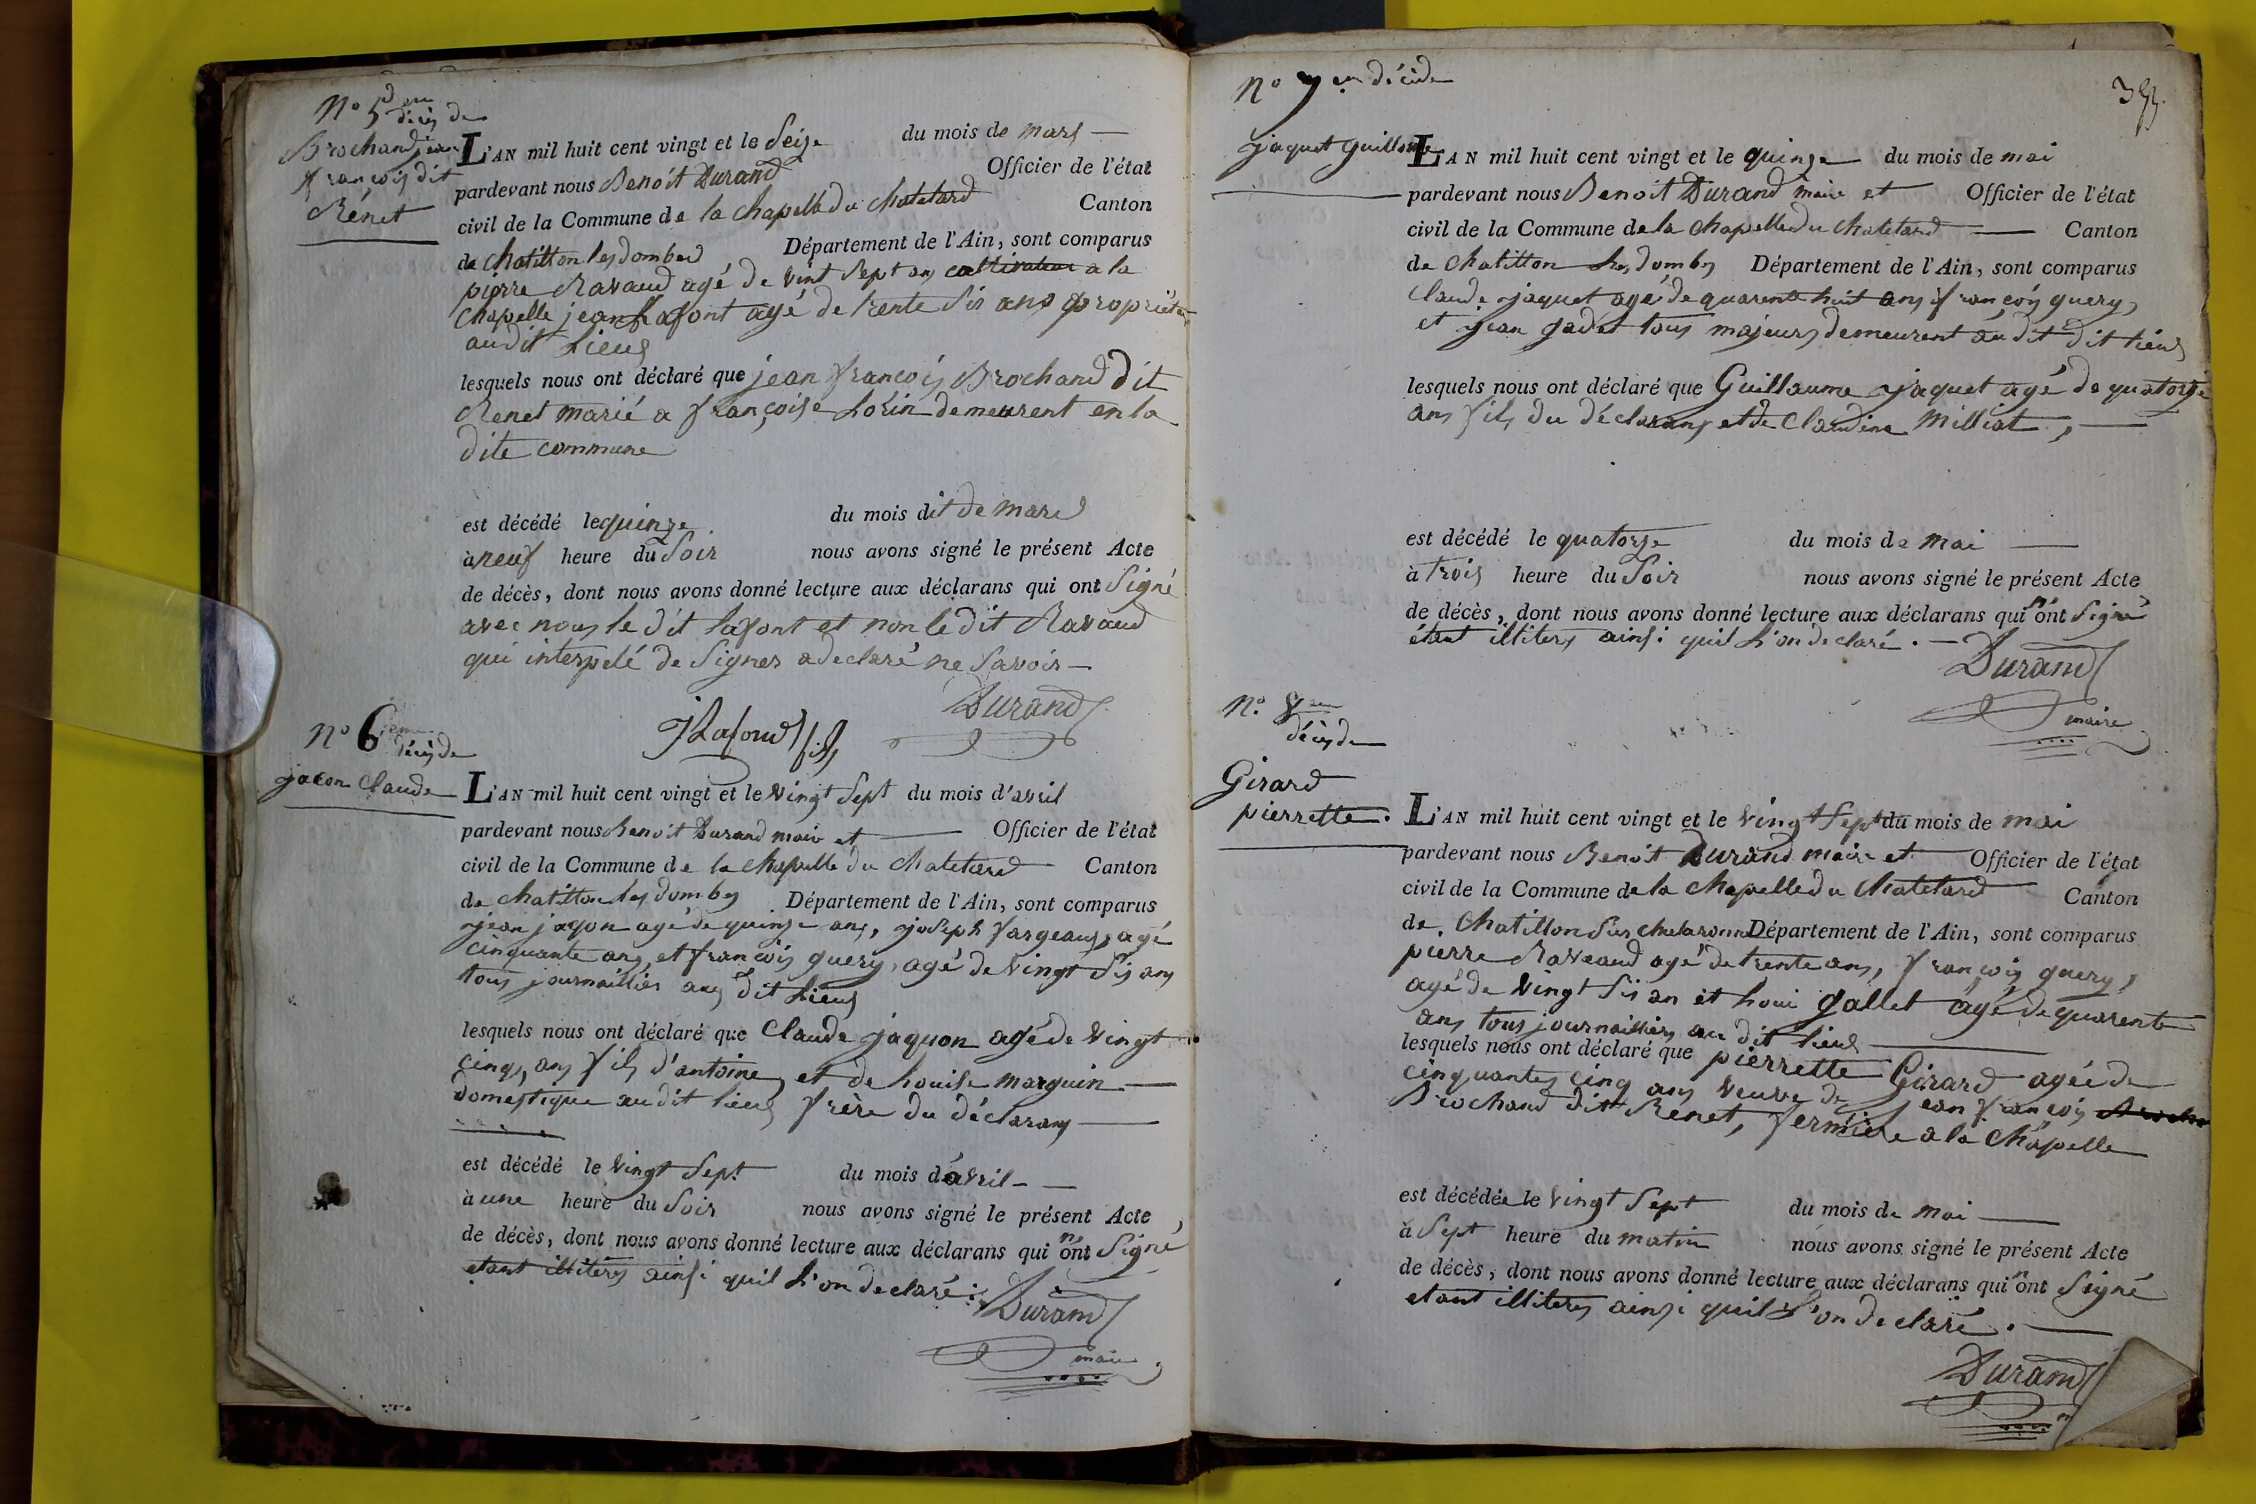 No 5
décès de
Brochand jean
françois dit
Rénet
L'AN mil huit cent vingt et le Seize du mois de mars
pardevant nous Benoit Durand Officier de l'état
civil de la Commune de la chapelle du chatelard Canton
de chatillon les dombes Département de l'Ain, sont comparus
pierre Ravaud agé de vint Sept ans cultivateur a la
chapelle jean Lafont agé de trente Sis ans propriétai
audit Lieus
lesquels nous ont déclaré que jean françois Brochand dit
Renet marié a françoise Lorin demeurent en la
dite commune
est décédé le quinze du mois dit de mars
à neuf heure du Soir nous avons signé le présent Acte
de décès, dont nous avons donné lecture aux déclarans qui ont Signé
avec nous le dit lafont et non le dit Ravaud
qui interpelé de Signer a declaré ne Savoir
JLafond fils Durand
No 6
décès de
jacon Claude
L'AN mil huit cent vingt et le vingt Sept du mois d'avril
pardevant nous Benoit Durand maire et Officier de l'état
civil de la Commune de la chapelle du chatelard Canton
de chatillon les dombes Département de l'Ain, sont comparus
jean jaquon agé de quinze ans, joseph fargeaus, agé
cinquante ans, et françois guery, agé de vingt Sis ans
tous journaillier aus dit Lieus
lesquels nous ont déclaré que Claude jaquon agé de vingt
cinq, ans fils d'antoine, et de Louise marguin
domestique au dit lieus frère du déclarans
est décédé le vingt Sept du mois d'avril
à une heure du Soir nous avons signé le présent Acte,
de décès, dont nous avons donné lecture aux déclarans qui n'ont Signé
etant illiters ainsi quil L'on declaré.
Durand
maire
No 7 décès de
355
jaquet Guillome
L'AN mil huit cent vingt et le quinze du mois de mai
pardevant nous Benoit Durand maire et Officier de l'état
civil de la Commune de la chapelle du chatelard Canton
de chatillon les dombes Département de l'Ain, sont comparus
Claude jaquet agé de quarente huit ans françois guery,
et jean gadet tous majeurs demeurent au dit dit lieus
lesquels nous ont déclaré que Guillaume jaquet agé de quatorze
ans fils du déclarans et de Claudine Milliat,
est décédé le quatorze du mois de mai
à trois heure du Soir nous avons signé le présent Acte
de décès, dont nous avons donné lecture aux déclarans qui n'ont Signé
étant illiters ainsi quil L'on declaré.
Durand
maire
No. 8
décès de
Girard
pierrette.
L'AN mil huit cent vingt et le vingt Sept du mois de mai
pardevant nous Benoit Durand maire et Officier de l'état
civil de la Commune de la chapelle du chatelard Canton
de Chatillon Sur chalaronne Département de l'Ain, sont comparus
pierre Raveaud agé de trente ans, françois guery,
agé de vingt Sis an et Loui gallet agé de quarente
ans tous journailliers au dit lieus
lesquels nous ont déclaré que pierrette Girard agée de
cinquantes cinq ans veuve de jean françois
Brochand dit Renet, fermière a la chapelle
est décédée le vingt Sept du mois de mai
à Sept heure du matin nous avons signé le présent Acte
de décès, dont nous avons donné lecture aux déclarans qui n'ont Signé
etant illiters ainsi quil L'on declaré.
Durand